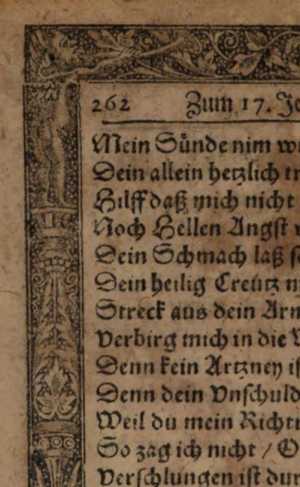 262 Zum 17. Je
Mein Sünde nim
Dein allein hertzlich
Hilff daß mich nicht
Noch Hellen Angst
Dein Schmach laß
Dein heilig Creütz
Streck aus dein
verbirg mich in die
Denn kein Artzney
Denn dein Vnschuld
Weil du mein
So zag ich nicht /
Verschlungen ist